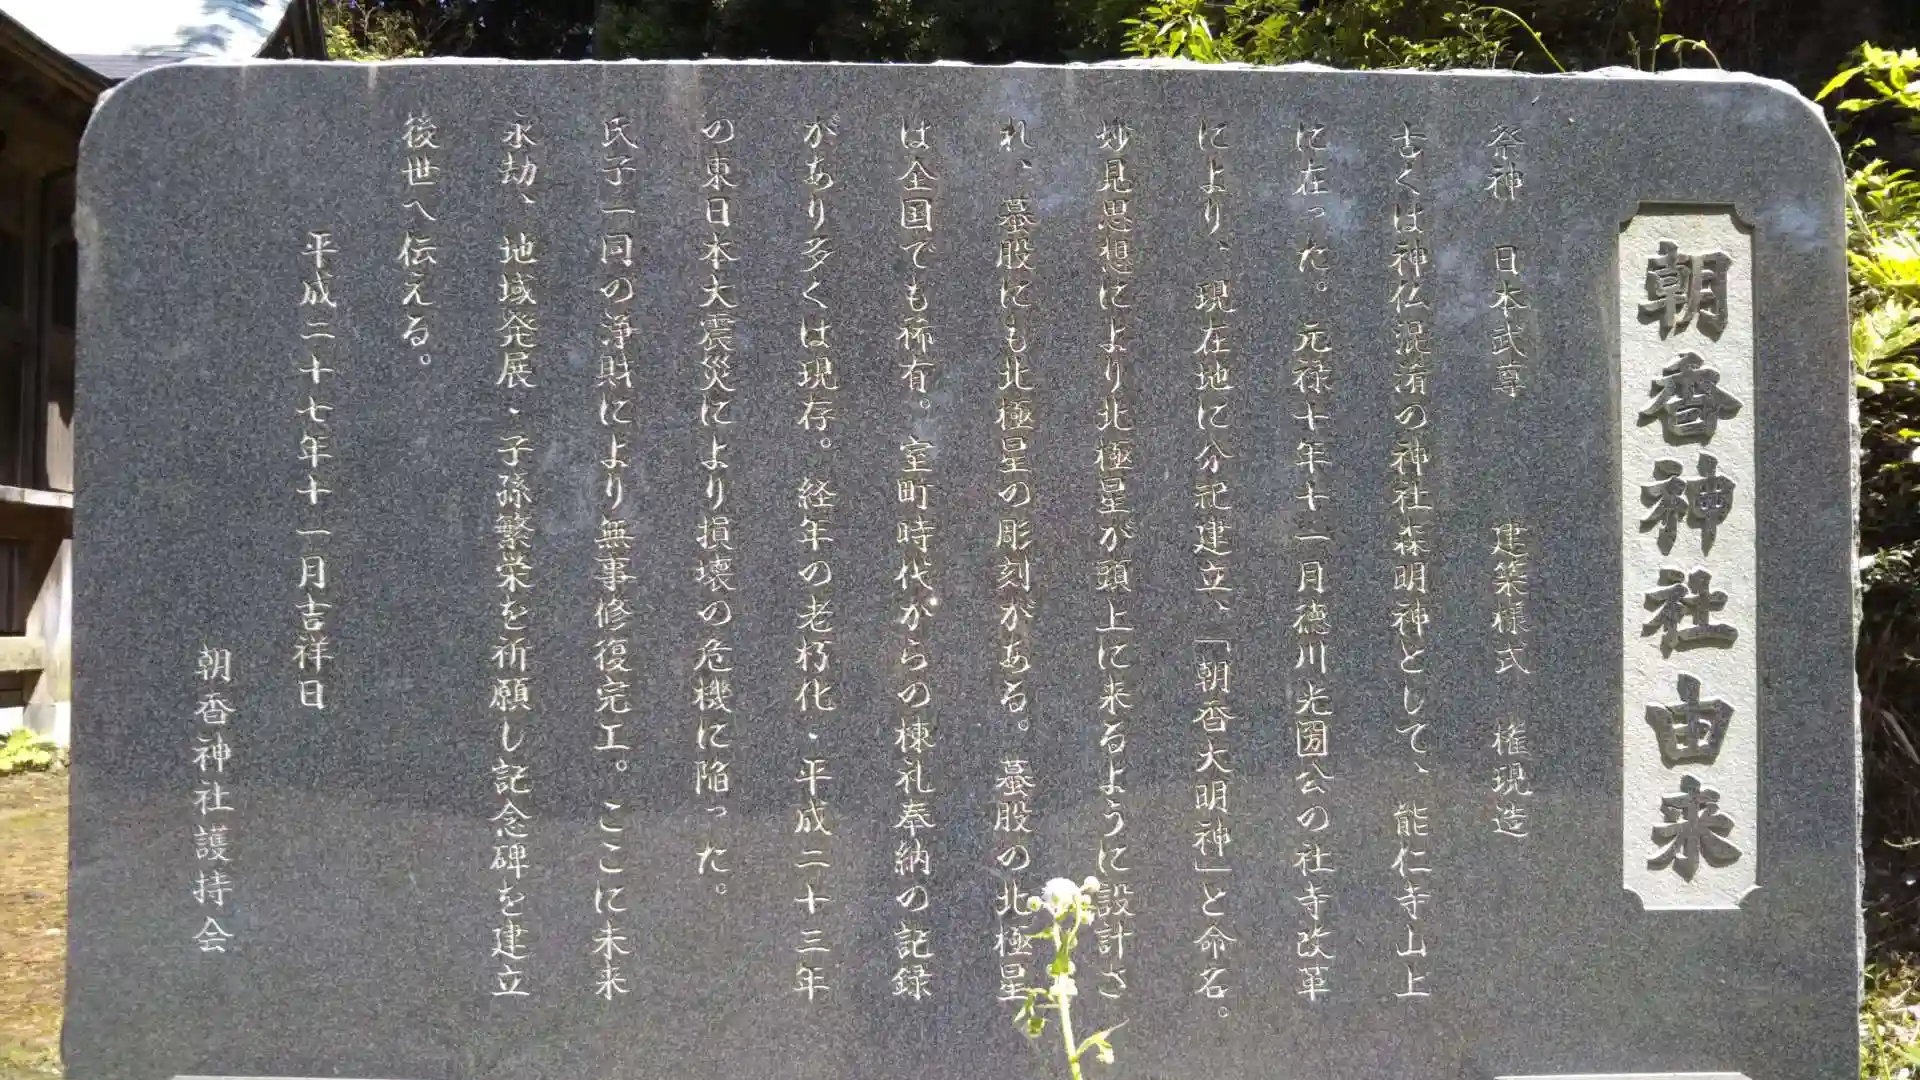 朝香神社由来
祭神　日本武尊　　　建築様式　権現造
古くは神仏混淆の神社森明神として、能仁寺山上
に在った。元禄十年十一月徳川光圀公の社寺改革
により、現在地に分祀建立、「朝香大明神」と命名。
妙見思想により北極星が頭上に来るように設計さ
れ、蟇股にも北極星の彫刻がある。蟇股の北極星
は全国でも稀有。室町時代からの棟札奉納の記録
があり多くは現存。経年の老朽化・平成二十三年
の東日本大震災により損壊の危機に陥った。
氏子一同の浄財により無事修復完工。ここに未来
永劫、地域発展・子孫繁栄を祈願し記念碑を建立
後世へ伝える。
平成二十七年十一月吉祥日
朝香神社護持会